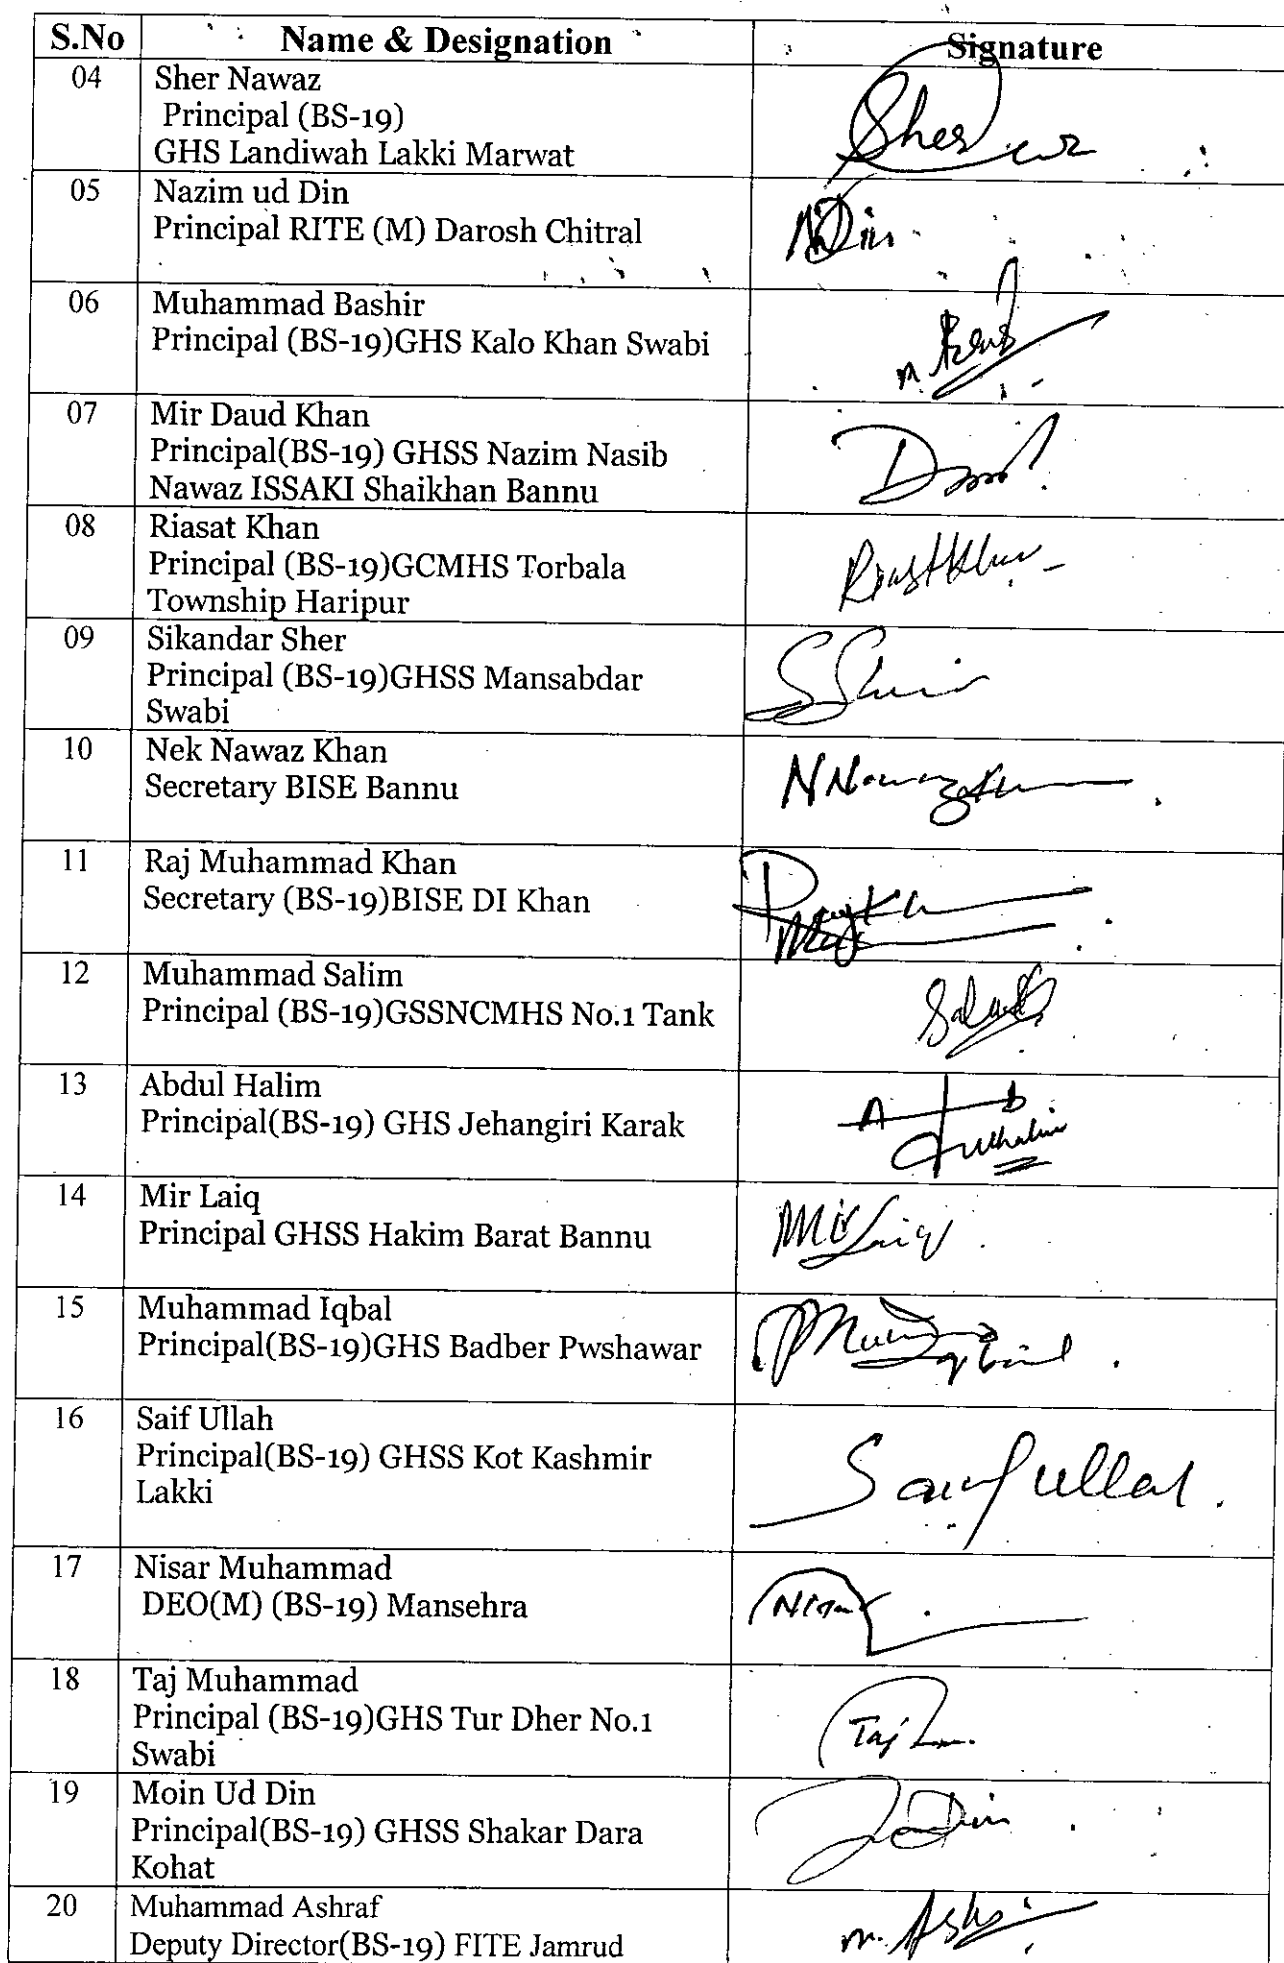 S.No Name & Designation Signature
04 Sher Nawaz
Principal (BS-19)
GHS Landiwah Lakki Marwat
Sher
05 Nazim ud Din
Principal RITE (M) Darosh Chitral
NDin
06 Muhammad Bashir
Principal (BS-19)GHS Kalo Khan Swabi
07 Mir Daud Khan
Principal(BS-19) GHSS Nazim Nasib
Nawaz ISSAKI Shaikhan Bannu
08 Riasat Khan
Principal (BS-19)GCMHS Torbala
Township Haripur
09 Sikandar Sher
Principal (BS-19)GHSS Mansabdar
Swabi
10 Nek Nawaz Khan
Secretary BISE Bannu
11 Raj Muhammad Khan
Secretary (BS-19)BISE DI Khan
12 Muhammad Salim
Principal (BS-19)GSSNCMHS No.1 Tank
13 Abdul Halim
Principal(BS-19) GHS Jehangiri Karak
14 Mir Laiq
Principal GHSS Hakim Barat Bannu
Mir Laiq
15 Muhammad Iqbal
Principal(BS-19)GHS Badber Pwshawar
16 Saif Ullah
Principal(BS-19) GHSS Kot Kashmir
Lakki
17 Nisar Muhammad
DEO(M) (BS-19) Mansehra
18 Taj Muhammad
Principal (BS-19)GHS Tur Dher No.1
Swabi
Taj
19 Moin Ud Din
Principal(BS-19) GHSS Shakar Dara
Kohat
20 Muhammad Ashraf
Deputy Director(BS-19) FITE Jamrud